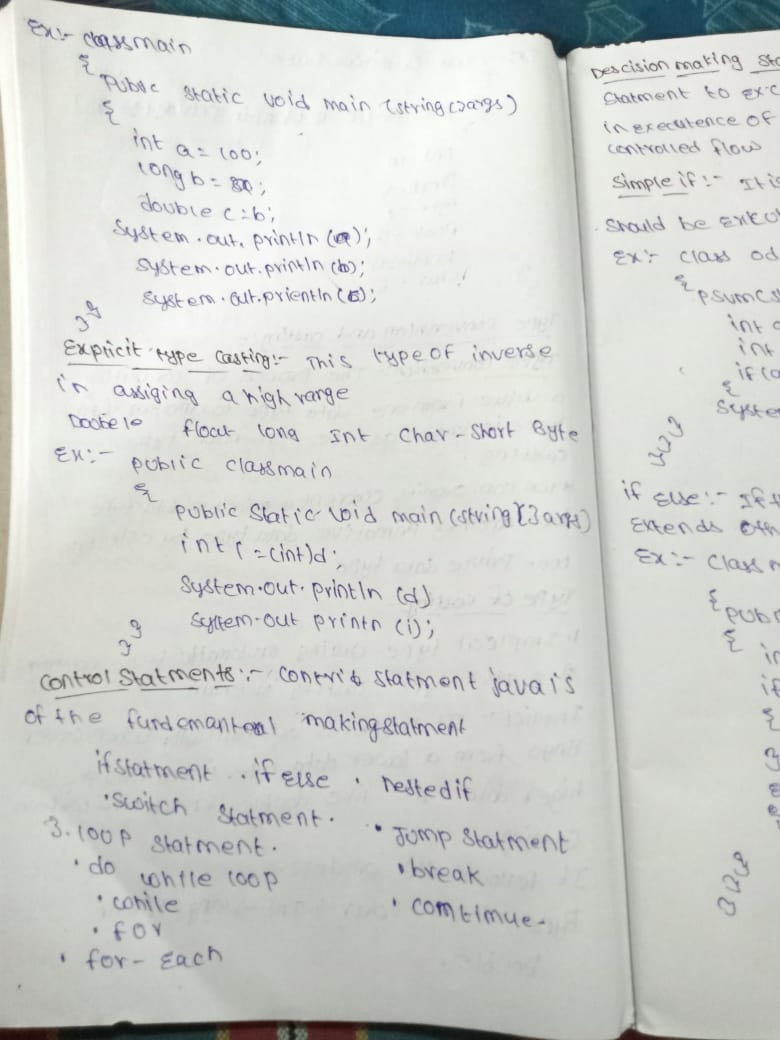 Ex:- class main
{
public static void main (string[]args)
{
int a = 100;
long b = ;
double c = b;
System.out.println (a);
System.out.println (b);
System.out.prientln ();
}}
Explicit type casting:- This type of inverse
in assiging a high range
Doobele float long Int Char - Short Byte
Ex:- public classmain
{
public static void main (string[] args)
int i = (int)d;
System.out.println (d)
System.out printn (i);
}}
Control Statments:- Statment java is
of the makingstatment
if statment . if else . nested if
• Switch Statment.
3. loop Statment.
• do while loop
• while
• for
• for - Each
• Jump Statment
• break
• comtimue.
Descision making
Statment to
in executence of
controlled flow
Simple if :- It is
Should be
Ex:- class
{
int
int
if (
{
Syste
}}}
if else :-
Extends
Ex:- class
{
{
if
{
}
}}}